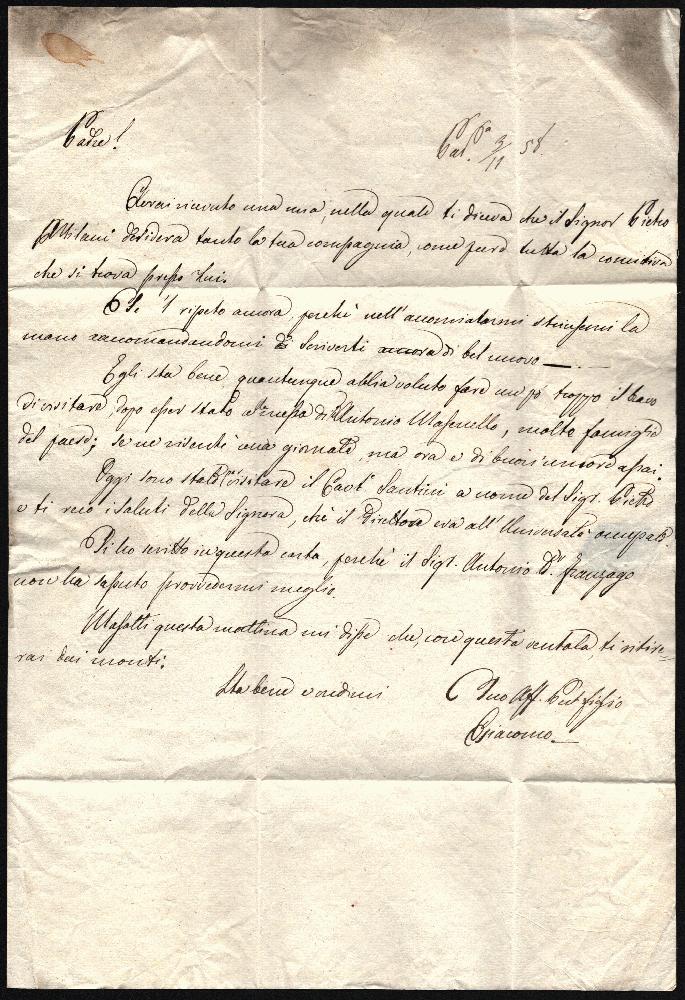 Padre!
Pad.ª 3/11 58.
Avrai ricevuto una mia, nella quale ti diceva che il Signor Pietro
Milani desidera tanto la tua compagnia, come pure tutta la comitiva
che si trova presso Lui.
Te 'l ripeto ancora, perchè nell'accomiatarmi strinsemi la
mano raccomandandomi di Scriverti ancora di bel nuovo —
Egli sta bene quantunque abbia voluto fare un pò troppo il bravo
di visitare, dopo esser stato a messa di Antonio Masenello, molte famiglie
del paese; se ne risentì una giornata, ma ora è di buon umore assai.
Oggi sono stato a visitare il Cavr Santini a nome del Sigr. Pietro
e ti reco i saluti della Signora, chè il Direttore era all'Università occupato.
Ti ho scritto in questa carta, perchè il Sigr. Antonio Dr. Franzago
non ha saputo provvedermi meglio.
Masatti questa mattina mi disse che, con questa ventola, ti ritire-
rai dai monti.
Sta bene e credimi
Tuo Aff. figlio
Giacomo —